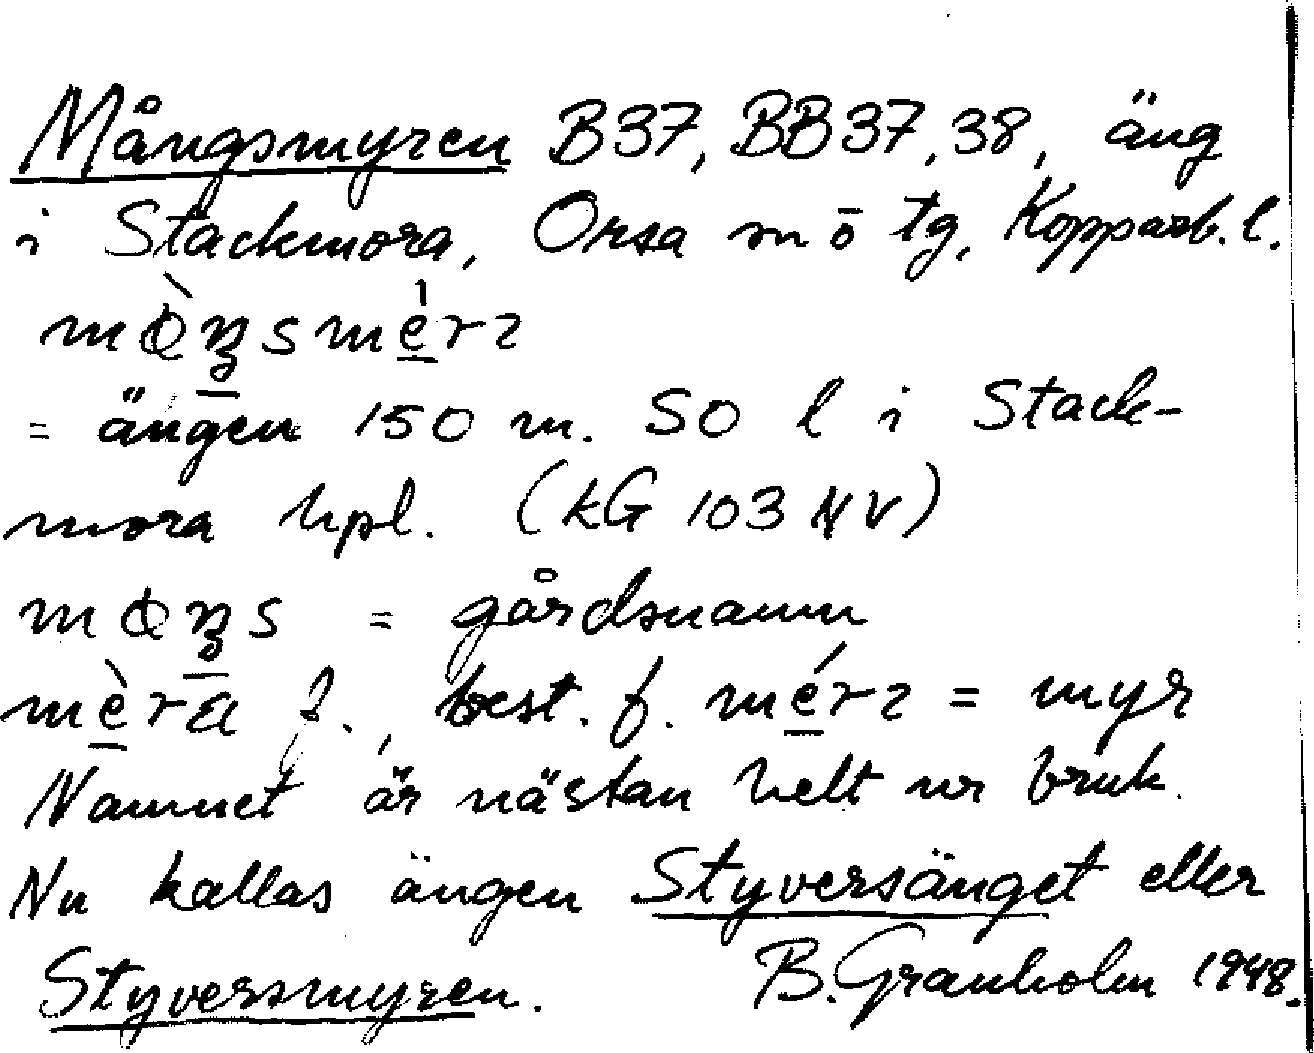 Mångsmyren B37, BB37,38, äng
i Stackmora, Orsa sn ö tg, Kopparb. l.
= ängen 150 m. SO l i Stack-
mora hpl. (kG 103 NV)
= gårdsnamn
f., best. f. = myr
Namnet är nästan helt ur bruk.
Nu kallas ängen Styversänget eller
Styversmyren. B. Granholm 1948.